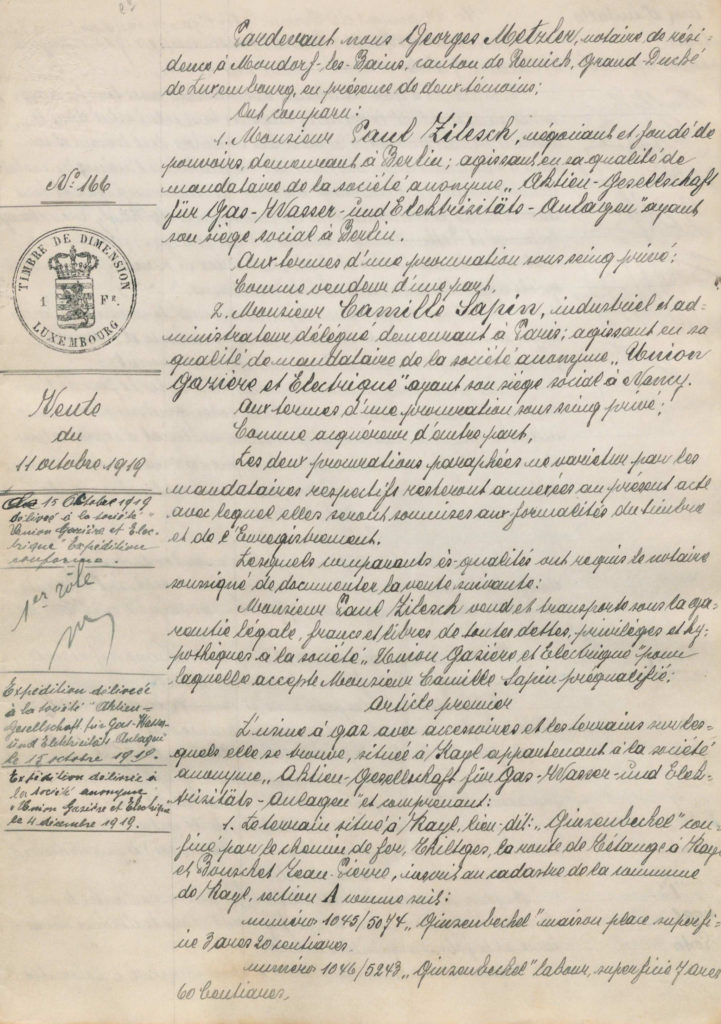 Nº 166
TIMBRE DE DIMENSION
1 Fr.
LUXEMBOURG
Vente
du
11 octobre 1919
15 Octobre 1919
délivré à la société "
Union Gazière et Elec-
trique" Expédition
conforme.
1er rôle
Expédition délivrée
à la société "Aktien-
Gesellschaft für Gas-Wasser-
und Elektricitäts Anlagen
le 15 octobre 1919.
Expédition délivrée à
la société anonyme
"Union Gazière et Electrique
le 4 décembre 1919.
Pardevant nous Georges Metzler, notaire de rési-
dence à Mondorf-les-Bains, canton de Remich, Grand-Duché
de Luxembourg, en présence de deux témoins;
Ont comparu:
1. Monsieur Paul Zilesch, négociant et fondé de
pouvoirs, demeurant à Berlin; agissant en sa qualité de
mandataire de la société anonyme „Aktien-Gesellschaft
für Gas-Wasser-und Elektrizitäts-Anlagen" ayant
son siège social à Berlin.
Aux termes d'une procuration sous seing privé;
Comme vendeur d'une part,
2. Monsieur Camille Sapin, industriel et ad-
ministrateur délégué demeurant à Paris; agissant en sa
qualité de mandataire de la société anonyme „Union
Gazière et Electrique" ayant son siège social à Nancy.
Aux termes d'une procuration sous seing privé;
Comme acquéreur d'autre part,
Les deux procurations paraphées ne varietur par les
mandataires respectifs resteront annexées au présent acte
avec lequel elles seront soumises aux formalités du timbre
et de l'Enregistrement.
Lesquels comparants ès-qualités ont requis le notaire
soussigné de documenter la vente suivante:
Monsieur Paul Zilesch vend et transporte sous la ga-
rantie légale, francs et libres de toutes dettes, privilèges et hy-
pothèques à la société „Union Gazière et Electrique" pour
laquelle accepte Monsieur Camille Sapin préqualifié;
Article premier
L'usine à gaz avec accessoires et les terrains sur les-
quels elle se trouve, située à Kayl appartenant à la société
anonyme „Aktien-Gesellschaft für Gas-Wasser-und Elek-
trizitäts-Anlagen" et comprenant:
1. Le terrain situé à Kayl, lieu-dit: „Ginzenbechel" con-
finé par le chemin de fer, Thiltges, la route de Tétange à Kayl
et Bouschet Jean-Pierre, inscrit au cadastre de la commune
de Kayl, section A comme suit:
numéro 1045/5074 „Ginzenbechel" maison place superfi-
cie 3 ares 20 centiares.
numéro 1046/5243 „Ginzenbechel" labour, superficie 7 ares
60 Centiares.